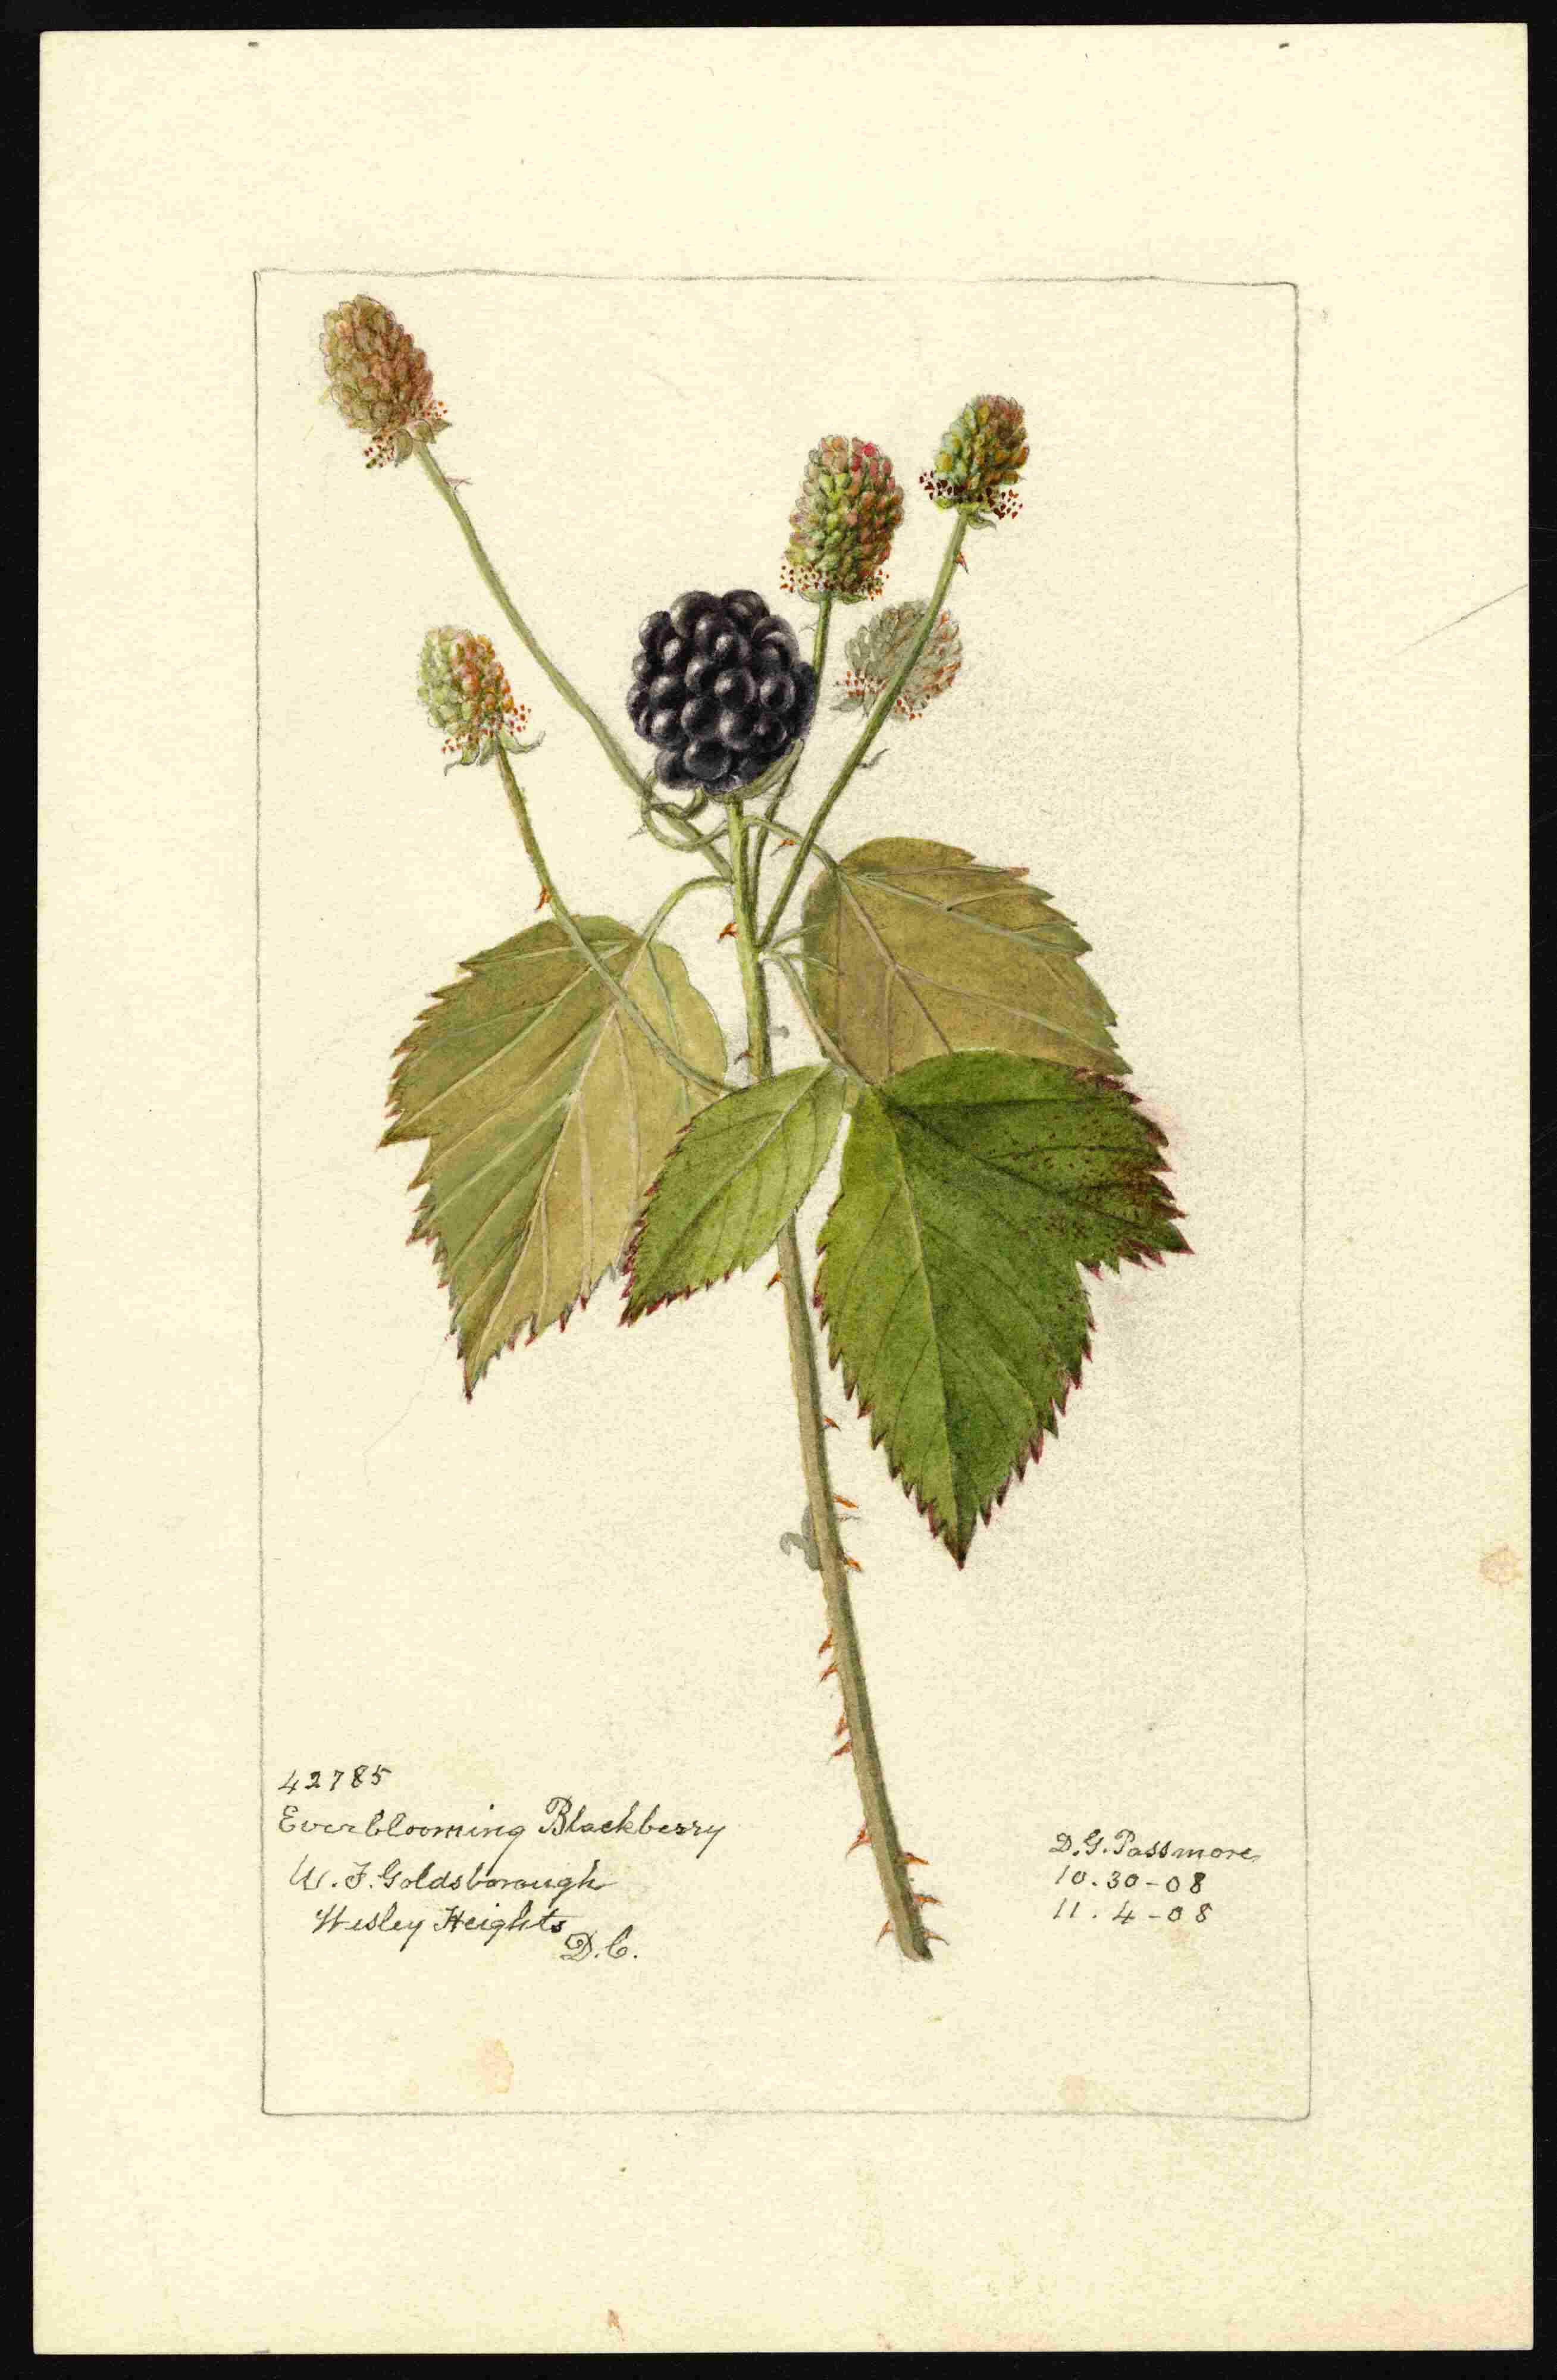 42785
Everblooming Blackberry
W. F. Goldsborough
Wesley Heights
D.C.
D.G. Passmore
10.30-08
11.4-08